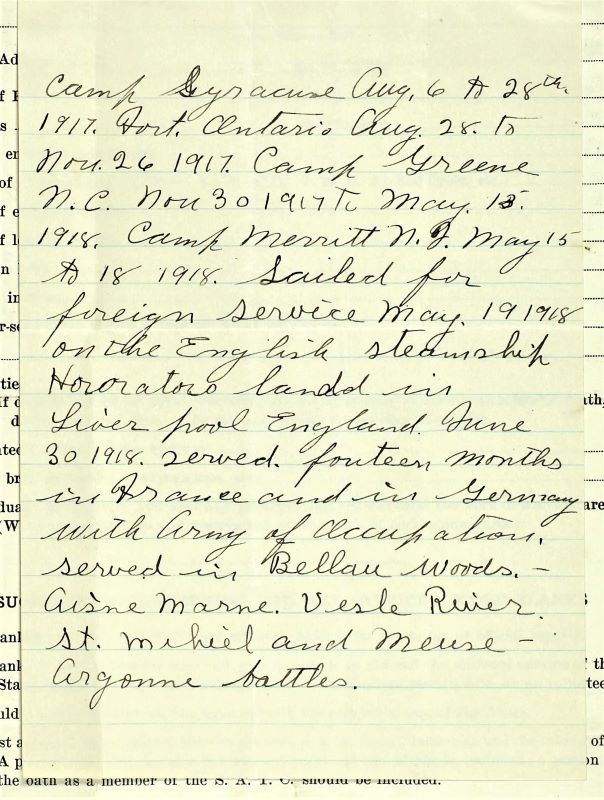 Camp Syracuse Aug. 6 to 28th.
1917. Fort. Ontario Aug. 28. to
Nov. 26 1917. Camp Greene
N.C. Nov 30 1917 To May. 15.
1918. Camp Merritt N.J. May 15
to 18 1918. Sailed for
foreign service May. 19 1918
on the English steamship
Hororatoro landd in
Liver pool England. June
30 1918. served. fouteen months
in France and in Germany
with Army of Occupation.
served in Bellau Woods.-
Aisne Marne. Vesle River.
St. Mihiel and Meuse-
Argonne battles.
the oath as a member of the S. A. T. C. should be included.